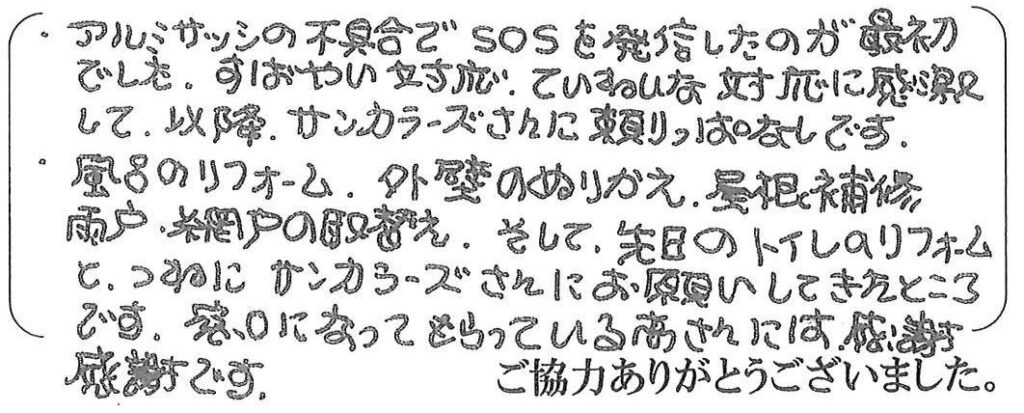 ・アルミサッシの不具合でSOSを発信したのが最初
でした。すばやい対応、ていねいな対応に感激
して、以降、サンカラーズさんに頼りっぱなしです。
・風呂のリフォーム、外壁のぬりかえ、屋根と補修
雨戸・網戸の取替え、そして、先日のトイレのリフォーム
と、つねにサンカラーズさんにお願いしてきたところ
です。窓口になってもらっている南さんには感謝
感謝です。
ご協力ありがとうございました。